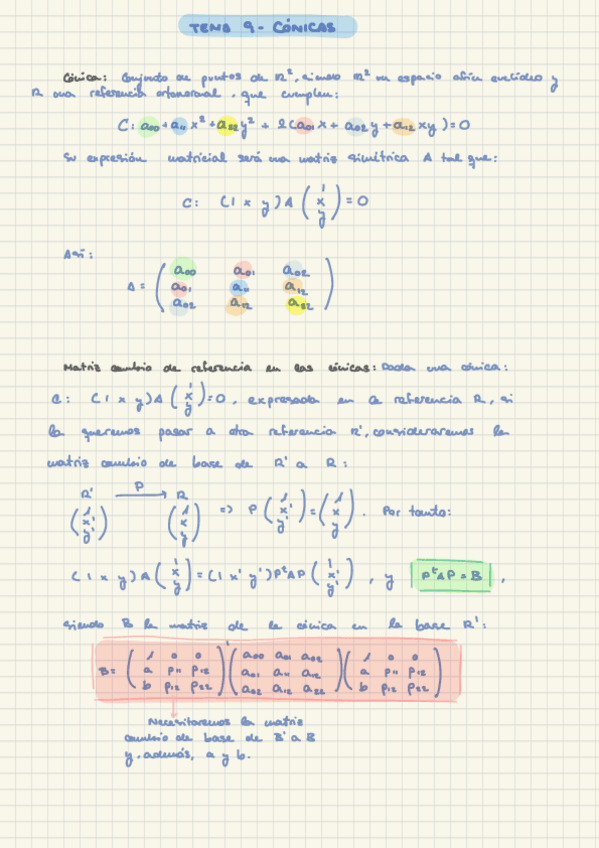 TEMA 9 - CÓNICAS
Cónica: Conjunto de puntos de R², siendo R² un espacio afín euclídeo y
R una referencia ortonormal, que cumplen:
C: a₀₀ + a₁₁x² + a₂₂y² + 2(a₀₁x + a₀₂y + a₁₂xy) = 0
Su expresión matricial será una matriz simétrica A tal que:
C: (1 x y) A (1 x y) = 0
Así:
A = (a₀₀ a₀₁ a₀₂
a₀₁ a₁₁ a₁₂
a₀₂ a₁₂ a₂₂)
Matriz cambio de referencia en las cónicas: Dada una cónica:
C: (1 x y) A (1 x y) = 0, expresada en la referencia R, si
la queremos pasar a otra referencia R', consideraremos la
matriz cambio de base de R' a R:
R' P→ R
(1 x' y') (1 x y) => P (1 x' y') = (1 x y). Por tanto:
(1 x y) A (1 x y) = (1 x' y') PᵗAP (1 x' y'), y PᵗAP = B,
siendo B la matriz de la cónica en la base R':
B = (1 0 0 / a p₁₁ p₁₂ / b p₁₂ p₂₂)ᵗ (a₀₀ a₀₁ a₀₂ / a₀₁ a₁₁ a₁₂ / a₀₂ a₁₂ a₂₂) (1 0 0 / a p₁₁ p₁₂ / b p₁₂ p₂₂)
Necesitaremos la matriz
cambio de base de B' a B
y, además, a y b.